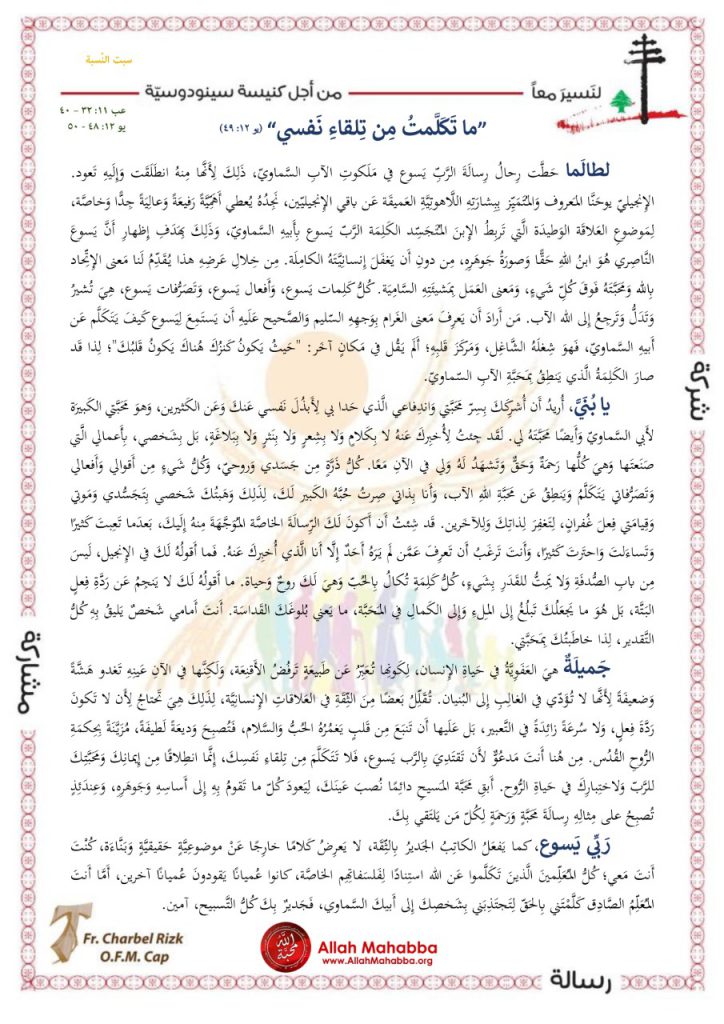 سبت النّسبة
لنَسيرَ معاً
من أجل كنيسة سينودوسيّة
عب ١١: ٣٢ - ٤٠
يو ١٢: ٤٨ - ٥٠
”ما تَكَلَّمتُ مِن تِلقاءِ نَفسي“ (يو ١٢: ٤٩)
لطالَما حَطَّت رِحالُ رِسالَةَ الرَّبِّ يَسوع في مَلَكوتِ الآبِ السَّماويّ، ذَلِكَ لِأَنَّها مِنهُ انطَلَقَت وَإِليهِ تَعود.
الإنجيليّ يوحَنَّا المَعروف وَالمُتَمَيِّز بِبِشارَتِهِ اللَّاهوتِيَّةِ العَميقَة عَن باقي الإنجيليّين، نَجِدُهُ يُعطي أَهَمِّيَّةً رَفيعَةً وَعالِيَةً جِدًّا وَخاصَّة،
لِمَوضوعِ العَلاقَة الوَطيدَة الَّتي تَربِطُ الإبنَ المُتَجَسِّد الكَلِمَة الرَّبّ يَسوع بِأَبيهِ السَّماويّ، وَذَلِكَ بِهَدَفِ إِظهارِ أَنَّ يَسوعَ
النَّاصِري هُوَ ابنُ اللهِ حَقًّا وَصورَةُ جَوهَرِه، مِن دونِ أَن يَغفَلَ إِنسانِيَّتَهُ الكامِلَة. مِن خِلالِ عَرضِهِ هذا يُقَدِّمُ لَنا مَعنى الإتِّحاد
بِالله وَمَحَبَّتَهُ فَوقَ كُلِّ شَيءٍ، وَمَعنى العَمَل بِمَشيئَتِهِ السَّامِيَة. كُلُّ كَلِمات يَسوع، وَأَفعال يَسوع، وَتَصَرُّفات يَسوع، هِيَ تُشيرُ
وَتَدُلُّ وَتَرجِعُ إلى الله الآب. مَن أَرادَ أَن يَعرِفَ مَعنى الغَرام بِوَجهِهِ السَّليم وَالصَّحيح عَلَيهِ أَن يَستَمِعَ لِيَسوع كَيفَ يَتَكَلَّم عَن
أَبيهِ السَّماويّ، فَهوَ شِغلَهُ الشَّاغِل، وَمَركَزَ قَلبِهِ؛ أَلَمْ يَقُل في مَكانٍ آخَر: "حَيثُ يَكونُ كَنزُكَ هُناكَ يَكونُ قَلبُكَ"؛ لِذا قَد
صارَ الكَلِمَةُ الَّذي يَنطِقُ بِمَحبَّةِ الآبِ السّماويّ.
يا بُنَيَّ، أُريدُ أَن أُشرِكَكَ بِسِرّ مَحَبَّتي وَاندِفاعي الَّذي حَدا بي لِأَبذُلَ نَفسي عَنكَ وَعَن الكَثيرين، وَهوَ مَحَبَّتي الكَبيرَة
لِأَبي السَّماويّ وَأَيضًا مَحَبَّتَهُ لي. لَقَد جِئتُ لِأُخبِرَكَ عَنهُ لا بِكَلامٍ وَلا بِشِعرٍ وَلا بِنَثرٍ وَلا بِبَلاغَةٍ، بَل بِشَخصي، بِأَعمالي الَّتي
صَنَعتَها وَهيَ كُلُّها رَحمَةٌ وَحَقٌّ وَتَشهَدُ لَهُ وَلي في الآنِ مَعًا. كُلُّ ذَرَّةٍ مِن جَسَدي وَروحيّ، وَكُلُّ شَيءٍ مِن أَقوالي وَأَفعالي
وَتَصَرُّفاتي يَتَكَلَّمُ وَيَنطِقُ عَن مَحَبَّةِ اللهِ الآب، وَأَنا بِذاتي صِرتُ حُبَّهُ الكَبير لَكَ، لِذلِكَ وَهَبتُكَ شَخصي بِتَجَسُّدي وَمَوتي
وَقِيامَتي فِعلَ غُفرانٍ، لِتَغفِرَ لِذاتِكَ وَلِلآخَرين. قَد شِئتُ أَن أَكونَ لَكَ الرِّسالَةَ الخاصَّة المُوَجَّهَةَ مِنهُ إلَيكَ، بَعدَما تَعِبتَ كَثيرًا
وَتَساءَلتَ وَاحتَرتَ كَثيرًا، وَأَنتَ تَرغَبُ أَن تَعرِفَ عَمَّن لَم يَرَهُ أَحَدٌ إلَّا أَنا الَّذي أُخبِرَكَ عَنهُ. فَما أَقولُهُ لَكَ في الإنجيل، لَيسَ
مِن بابِ الصُّدفَةِ وَلا يَمِتُّ لِلقَدَرِ بِشَيءٍ، كُلُّ كَلِمَةٍ تُكالُ بِالحُبّ وَهيَ لَكَ روحٌ وَحياة. ما أَقولُهُ لَكَ لا يَنجِمُ عَن رَدَّةِ فِعلٍ
البَتَّة، بَل هُوَ ما يَجعَلُكَ تَبلُغُ إلى المِلءِ وَإلى الكَمالِ في المَحَبَّة، ما يَعني بُلوغَكَ القَداسَة. أَنتَ أَمامي شَخصٌ يَليقُ بِهِ كُلُّ
التَّقدير، لِذا خاطَبتُكَ بِمَحَبَّتي.
جَميلَةٌ هيَ العَفوِيَّةُ في حَياةِ الإنسان، لِكَونِها تُعَبِّرُ عَن طَبيعَةٍ تَرفُضُ الأَقنِعَة، وَلَكِنَّها في الآنِ عَينِهِ تَغدو هَشَّةً
وَضَعيفَةً لِأَنَّها لا تُؤَدّي في الغالِبِ إلى البُنيان. تُقَلِّلُ بَعضًا مِنَ الثِّقَةِ في العَلاقاتِ الإنسانِيَّة، لِذلِكَ هِيَ تَحتاجُ لِأَن لا تَكونَ
رَدَّةَ فِعلٍ، وَلا سُرعَةً زائِدَةً في التَّعبير، بَل عَلَيها أَن تَنبَعَ مِن قَلبٍ يَغمُرُهُ الحُبُّ وَالسَّلام، فَتُصبِحَ وَديعَةً لَطيفَةً، مُزَيَّنَةً بِحِكمَةِ
الرُّوحِ القُدُس. مِن هُنا أَنتَ مَدعُوٌّ لأَن تَقتَدِيَ بِالرَّب يَسوع، فَلا تَتَكَلَّمَ مِن تِلقاءِ نَفسِكَ، إنَّما انطِلاقًا مِن إيمانِكَ وَمَحَبَّتِكَ
لِلرَّبّ وَلاختِبارِكَ في حَياةِ الرُّوح. أَبقِ مَحَبَّةَ المَسيحِ دائِمًا نُصبَ عَينَكَ، لِيَعودَ كُلّ ما تَقومُ بِهِ إلى أَساسِهِ وَجَوهَرِه، وَعِندَئِذٍ
تُصبِحُ على مِثالِهِ رِسالَةَ مَحَبَّةٍ وَرَحمَةٍ لِكُلّ مَن يَلتَقي بِكَ.
رَبّي يَسوع، كما يَفعَلُ الكاتِبُ الجَديرُ بِالثِّقَة، لا يَعرِضُ كَلامًا خارِجًا عَنْ مَوضوعِيَّةٍ حَقيقيَّةٍ وَبَنَّاءَة، كُنْتَ
أَنتَ مَعي؛ كُلُّ المُعَلِّمينَ الَّذينَ تَكَلَّموا عَن الله استِنادًا لِفَلسَفاتِهِم الخاصَّة، كانوا عُميانًا يَقودونَ عُميانًا آخرين، أَمَّا أَنتَ
المُعَلِّمُ الصَّادِق كَلَّمْتَني بِالحَقّ لِتَجتَذِبَني بِشَخصِكَ إلى أَبيكَ السَّماوي، فَجَديرٌ بِكَ كُلُّ التَّسبيح، آمين.
شركة
مشاركة
رسالة
Fr. Charbel Rizk
O.F.M. Cap
الله محبّة
Allah Mahabba
www.AllahMahabba.org